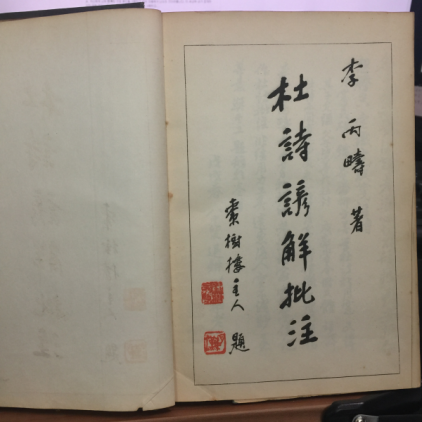 李丙疇 著
杜詩諺解批注
棗樹樓主人 題